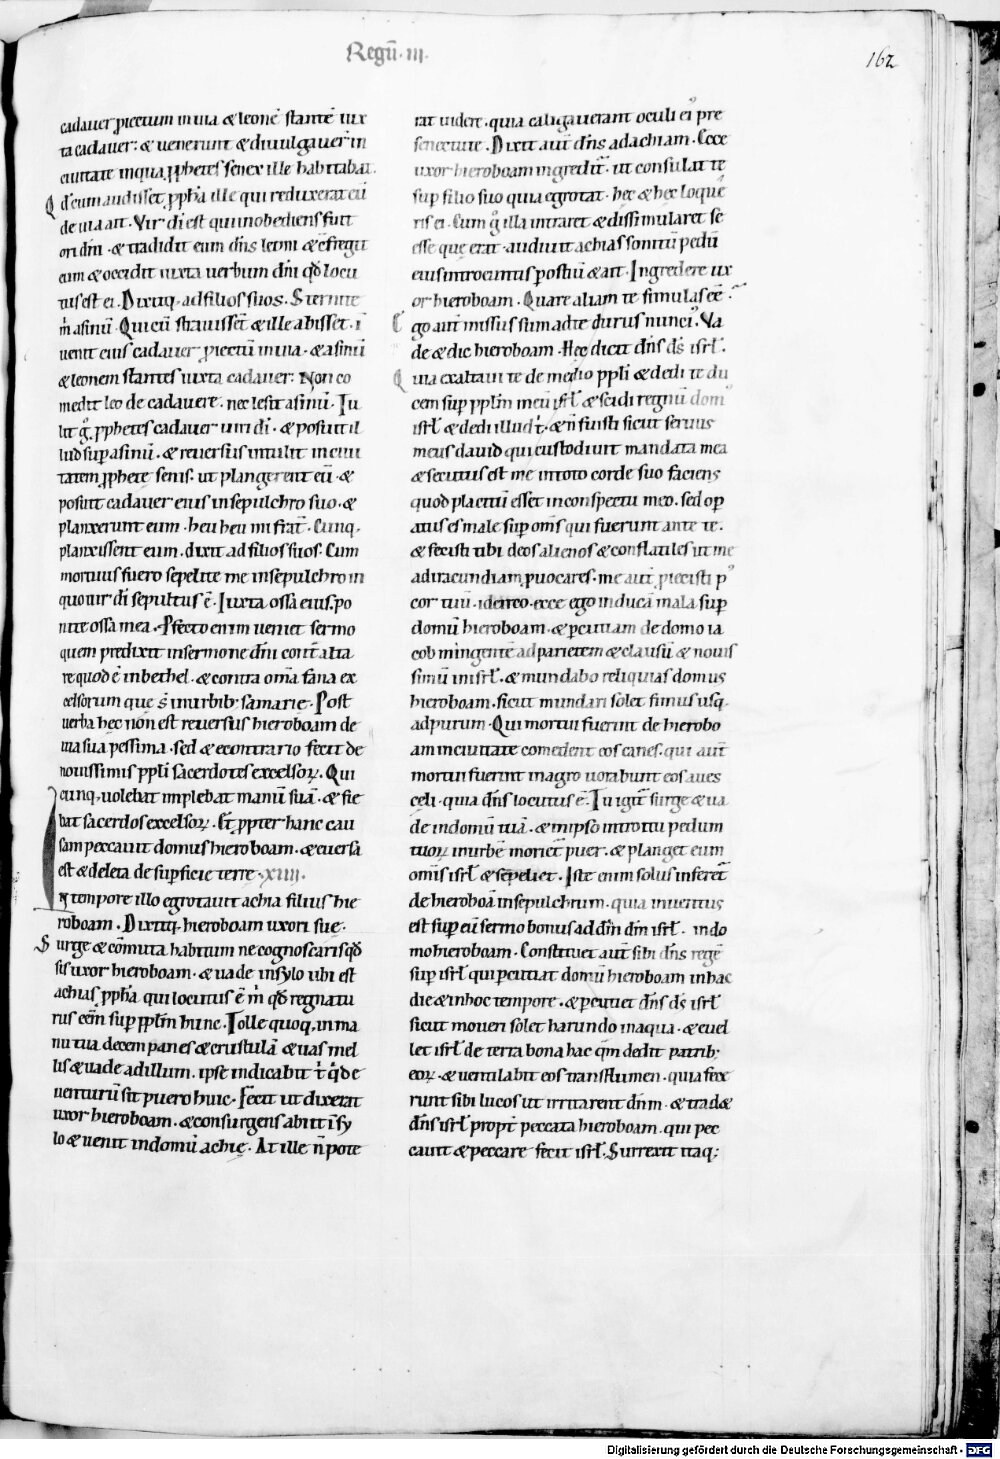 Regū · III ·
162
cadauer ꝓiectum in uia & leonē stantē iux
ta cadauer: & uenerunt & diuulgauer̄ in
ciuitate in qua ꝓphetes senex ille habitabat.
Qd̄ cum audisset ꝓpħa ille qui reduxerat eū
de uia ait. Vir dī est qui inobediens fuit
ori dn̄i · & tradidit eum dn̄s leoni & c̄fregit
eum & occidit iuxta uerbum dn̄i qd̄ locu
tus est ei. Dixitq; ad filios suos. Sternite
m̄ asinū. Qui cū strauissēt & ille abisset · ī
uenit eius cadauer ꝓiectū in uia · & asinū
& leonem stantes iuxta cadauer: Non co
medit leo de cadauere · nec lesit asinū. Tu
lit g̊ ꝓphetes cadauer uiri dī · & posuit il
lud suꝑ asinū · & reuersus intulit in ciui
tatem ꝓphete senis · ut plangerent eū · &
posuit cadauer eius in sepulchro suo · &
planxerunt eum · heu heu mi frat̄. Cunq;
planxissent eum · dixit ad filios suos. Cum
mortuus fuero sepelite me in sepulchro in
quo uir dī sepultus ē. Iuxta ossa eius · po
nite ossa mea. Ꝓfecto enim ueniet sermo
quem predixit in sermone dn̄i cont̄ alta
re quod ē in bethel · & contra om̄a fana ex
celsorum que s̄ in urbib; samarie. Post
uerba hec non est reuersus hieroboam de
uia sua pessima · sed & econtrario fecit de
nouissimis ppl̄i sacerdotes excelsoꝝ. Qui
cunq; uolebat implebat manū suā · & fie
bat sacerdos excelsoꝝ. Et ꝓpter hanc cau
sam peccauit domus hieroboam · & euersa
est & deleta de suꝑficie terre · XIIII ·
In tempore illo egrotauit achia filius hie
roboam. Dixitq; hieroboam uxori sue ·
Surge & cōmuta habitum ne cognoscaris qd̄
sis uxor hieroboam · & uade in sylo ubi est
achias ꝓpħa qui locutus ē m̄ qd̄ regnatu
rus eēm suꝑ ppl̄m hunc. Tolle quoq; in ma
nu tua decem panes & crustulā & uas mel
lis & uade ad illum · ipse indicabit t̄ qͥd e
uenturū sit puero huic. Fecit ut dixerat
uxor hieroboam · & consurgens abiit ī sy
lo & uenit in domū achie. At ille n̄ pote
rat uidere · quia caligauerant oculi ei᾽ pre
senectute. Dixit aut̄ dn̄s ad achiam. Ecce
uxor hieroboam ingredit᷑ · ut consulat te
suꝑ filio suo quia egrotat · hec & hec loque
ris ei. Cum g̊ illa intraret & dissimularet se
esse que erat · audiuit achias sonitū pedū
eius introeuntis ꝑ ostiū & ait. Ingredere ux
or hieroboam. Quare aliam te simulas eē.
Ego aut̄ missus sum ad te durus nunci᾽. Va
de & dic hieroboam. Hec dicit dn̄s ds̄ isrl̄.
Quia exaltaui te de medio ppl̄i & dedi te du
cem suꝑ ppl̄m meū isrl̄ & scidi regnū dom᾽
isrl̄ & dedi illud t̄ · & n̄ fuisti sicut seruus
meus dauid qui custodiuit mandata mea
& secutus est me in toto corde suo faciens
quod placitū esset in conspectu meo · sed oꝑ
atus es male suꝑ om̄s qui fuerunt ante te ·
& fecisti tibi deos alienos & conflatiles ut me
ad iracundiam ꝓuocares · me aut̄ ꝓiecisti p᾽
cor tuū · idcirco ecce ego inducā mala suꝑ
domū hieroboam · & ꝑcutiam de domo ia
cob mingentē ad parietem & clausū & nouis
simū in isrl̄ · & mundabo reliquias domus
hieroboam · sicut mundari solet fimus usq;
ad purum. Qui mortui fuerint de hierobo
am in ciuitate comedent eos canes · qui aut̄
mortui fuerint in agro uorabunt eos aues
celi · quia dn̄s locutus ē. Tu igit᷑ surge & ua
de in domū tuā · & in ipso introitu pedum
tuoꝝ in urbē moriet᷑ puer · & planget eum
om̄is isrl̄ & sepeliet. Iste enim solus inferet᷑
de hieroboā in sepulchrum · quia inuentus
est suꝑ eū sermo bonus ad dn̄m dm̄ isrl̄ · in do
mo hieroboam. Constituet aut̄ sibi dn̄s regē
suꝑ isrl̄ qui ꝑcutiat domū hieroboam in hac
die & in hoc tempore · & ꝑcutiet dn̄s ds̄ isrl̄
sicut moueri solet harundo in aqua · & euel
let isrl̄ de terra bona hac qm̄ dedit patrib;
eoꝝ · & uentilabit eos trans flumen · quia fece
runt sibi lucos ut irritarent dn̄m · & tradet
dn̄s isrl̄ propt̄ peccata hieroboam · qui pec
cauit & peccare fecit isrl̄. Surrexit itaq;
Digitalisierung gefördert durch die Deutsche Forschungsgemeinschaft - DFG